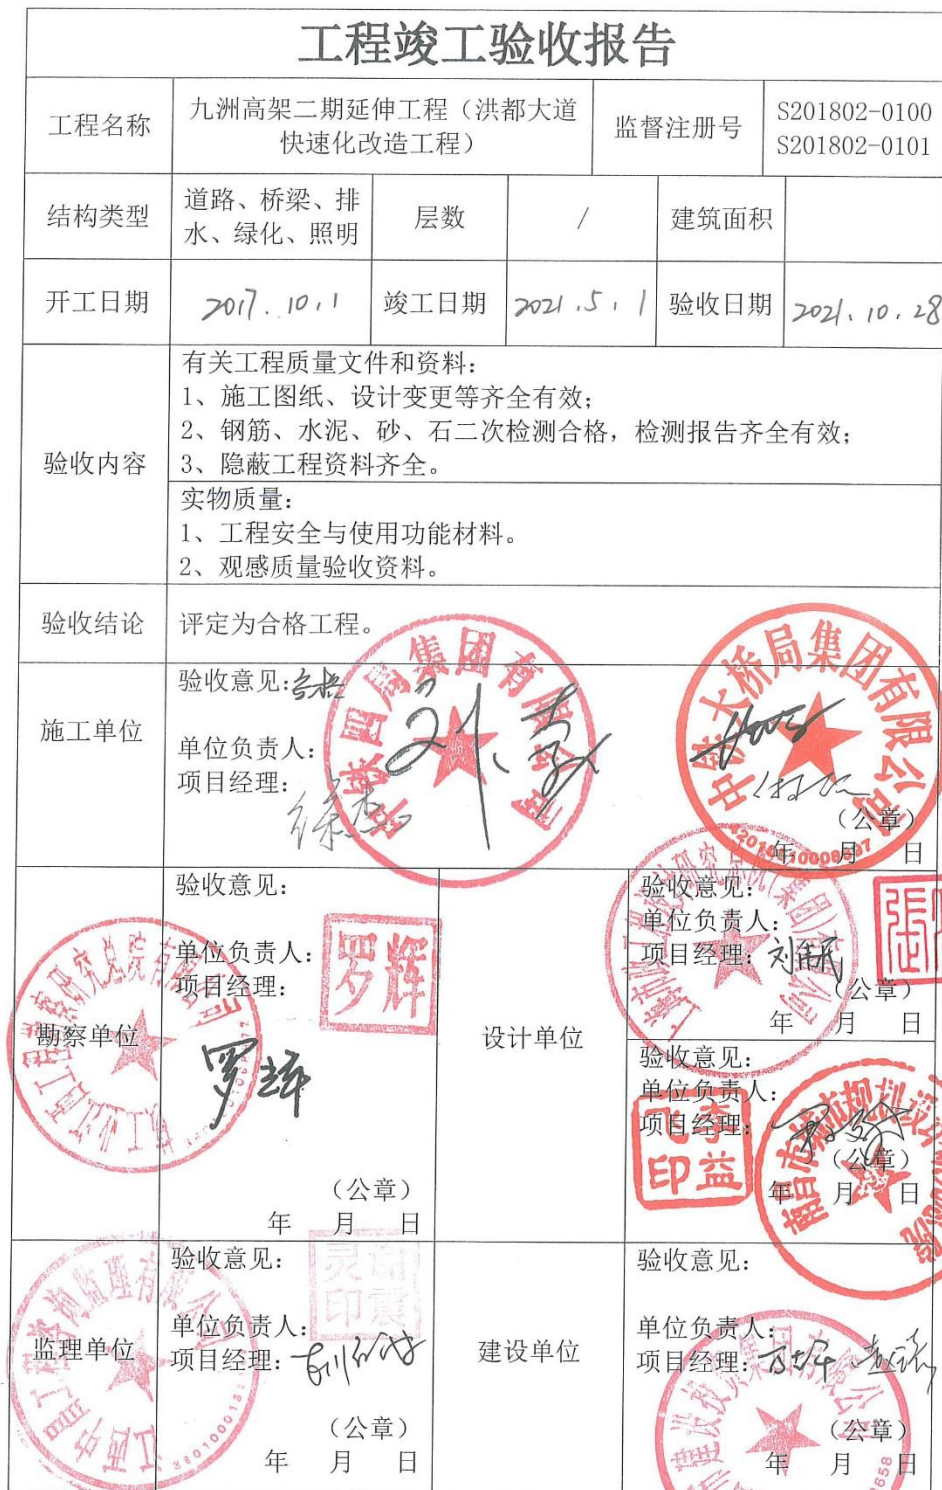 工程竣工验收报告
工程名称
九洲高架二期延伸工程（洪都大道
快速化改造工程）
监督注册号
S201802-0100
S201802-0101
结构类型
道路、桥梁、排
水、绿化、照明
层数
/
建筑面积
开工日期
2017.10.1
竣工日期
2021.5.1
验收日期
2021.10.28
验收内容
有关工程质量文件和资料：
1、施工图纸、设计变更等齐全有效；
2、钢筋、水泥、砂、石二次检测合格，检测报告齐全有效；
3、隐蔽工程资料齐全。
实物质量：
1、工程安全与使用功能材料。
2、观感质量验收资料。
验收结论
评定为合格工程。
施工单位
验收意见：合格
单位负责人：
项目经理：
徐杰
中铁四局集团有限公司
中铁大桥局集团有限公司
（公章）
年 月 日
勘察单位
验收意见：
单位负责人：
项目经理：
罗辉
罗辉
（公章）
年 月 日
设计单位
验收意见：
单位负责人：
项目经理：
（公章）
年 月 日
张
验收意见：
单位负责人：
项目经理：
李益
飞印
（公章）
年 月 日
监理单位
验收意见：
单位负责人：
项目经理：
（公章）
年 月 日
建设单位
验收意见：
单位负责人：
项目经理：
建设投资集团有限公司
（公章）
年 月 日